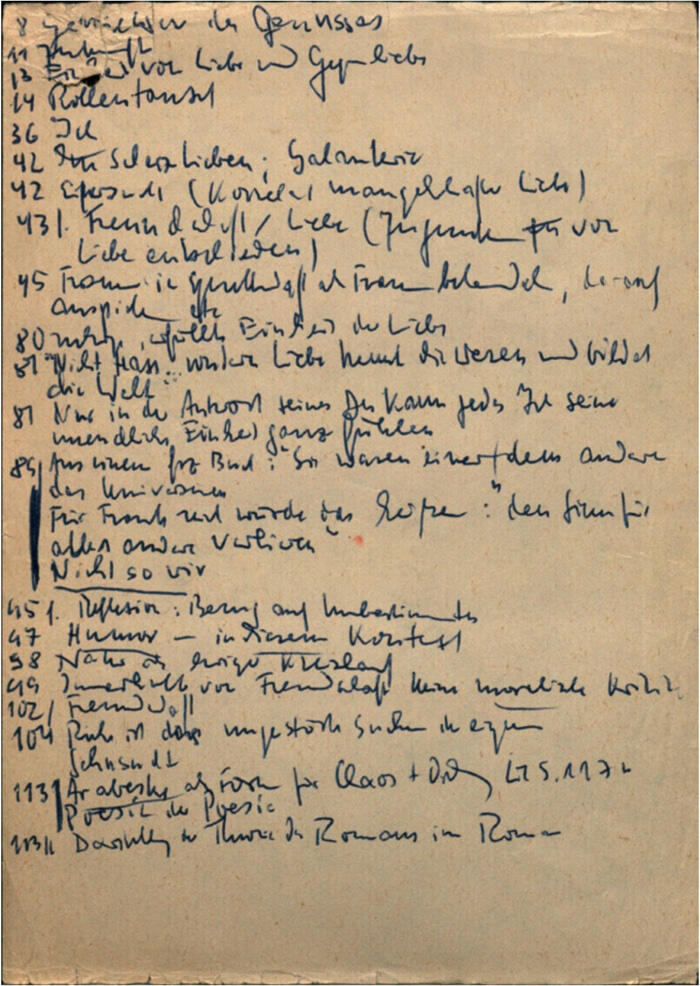 8 des Genusses
11 Zukunft
13 Einheit von Liebe und Gegenliebe
14 Rollentausch
36 Ich
42 Scherz lieben; Galanterie
42 Eifersucht (Korrelat mangelhafter Liebe)
43 f. Freundschaft / Liebe (Jugend von
Liebe entschieden)
45 Frauen in Gesellschaft als Frauen behandeln, darauf
anspielen etc
80 erfüllte Einheit der Liebe
81 "Nicht Hass.. sondern Liebe trennt die Wesen und bildet
die Welt"
81 Nur in der Antwort seines Du kann jedes Ich seine
unendliche Einheit ganz fühlen
89 Aus einem frz Buch: "Sie waren einer dem andern
das Universum
Für Frank würde das heißen: "den Sinn für
alles andere verlieren"
Nicht so wir
95 f. Reflexion: Bezug auf Unbestimmtes
97 Humor – in diesem Kontext
98 Nähe Kreislauf
99 Innerhalb von Freundschaft keine moralische Kritik
102 f Freundschaft
104 Ruhe ist das ungestört Suchen in eigner
Sehnsucht
113 f Arabeske als Form für Chaos + Ordng LT S. 117
Poesie der Poesie
113 Darstellg der Theorie des Romans im Roman